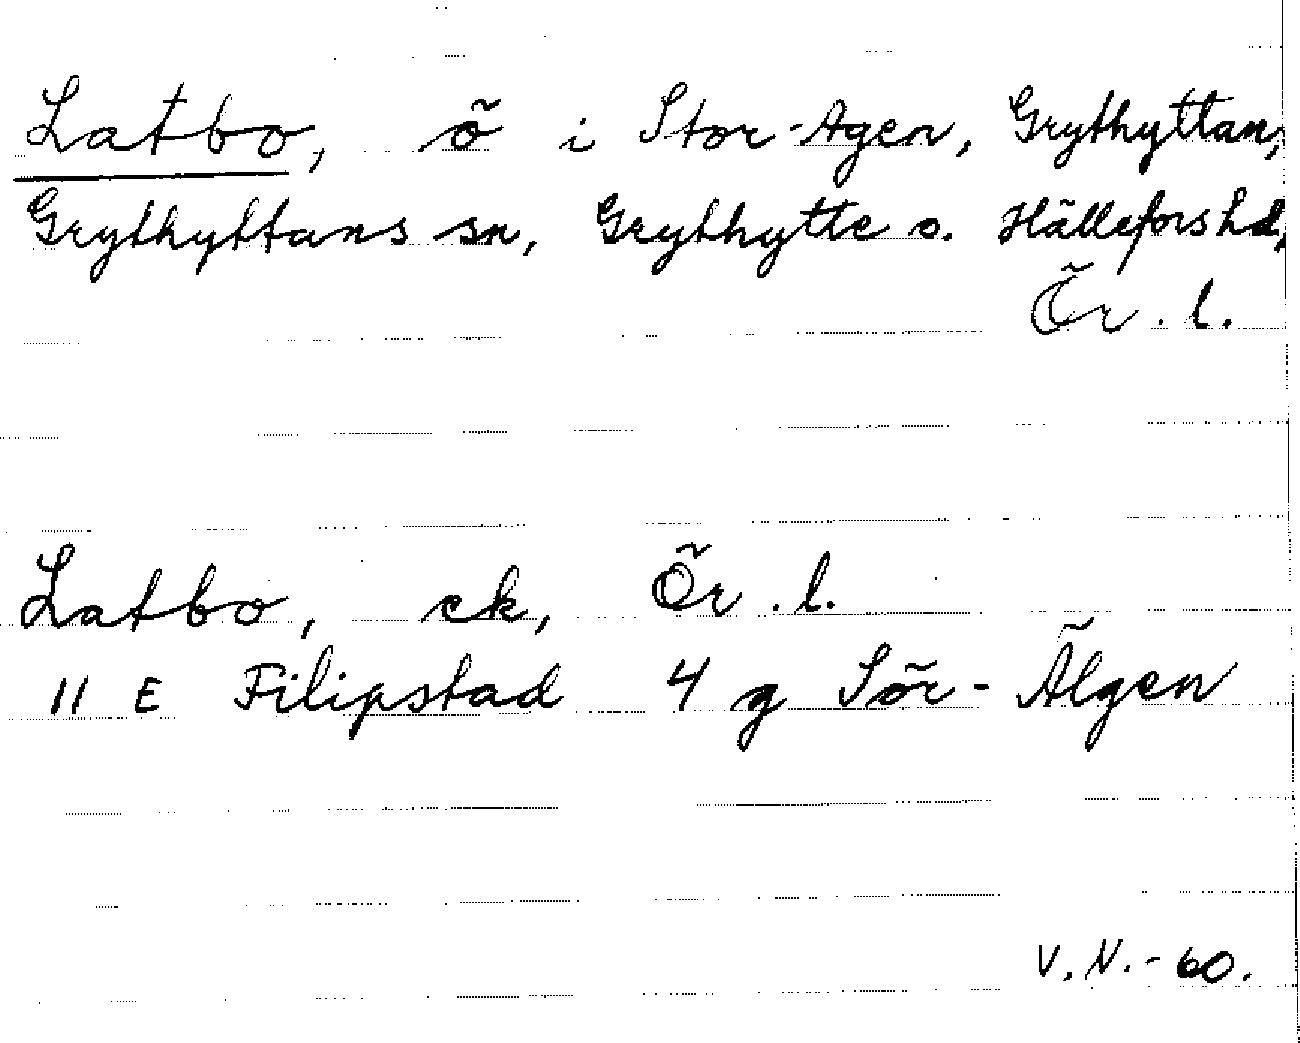 Latbo, ö i Stor-Agen, Grythyttan,
Grythyttans sn, Grythytte o. Hällefors hd,
Ör. l.
Latbo, ek, Ör. l.
11 E Filipstad 4 g Sör-Älgen
V. N. - 60.